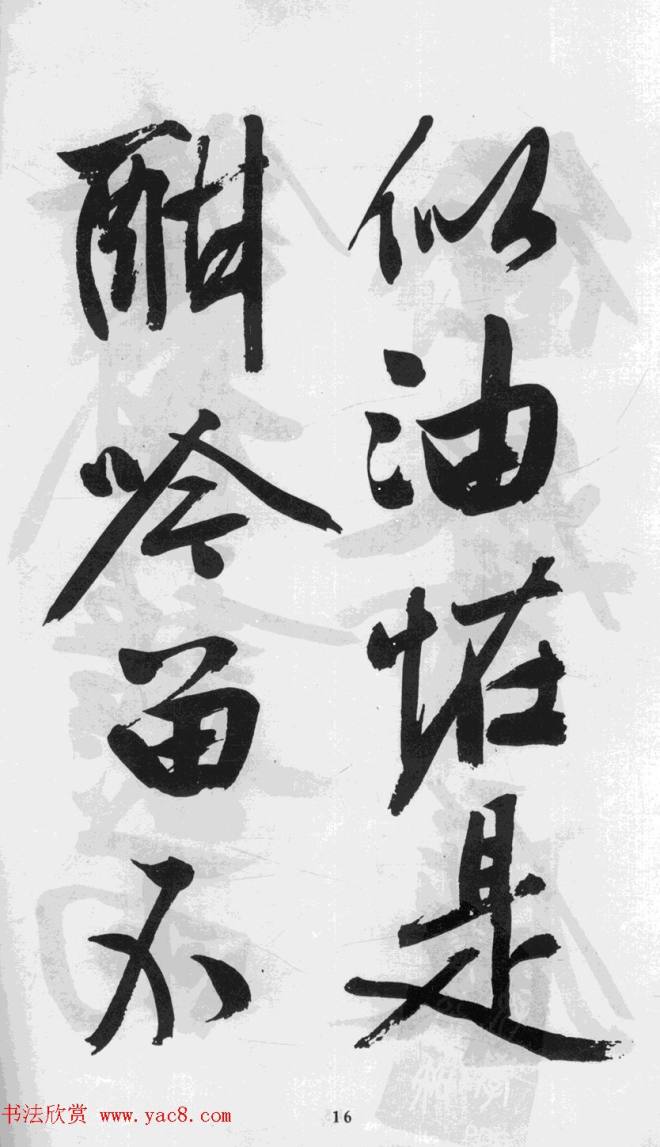 似油恠是
酣吟留不
书法欣赏 www.yac8.com
16